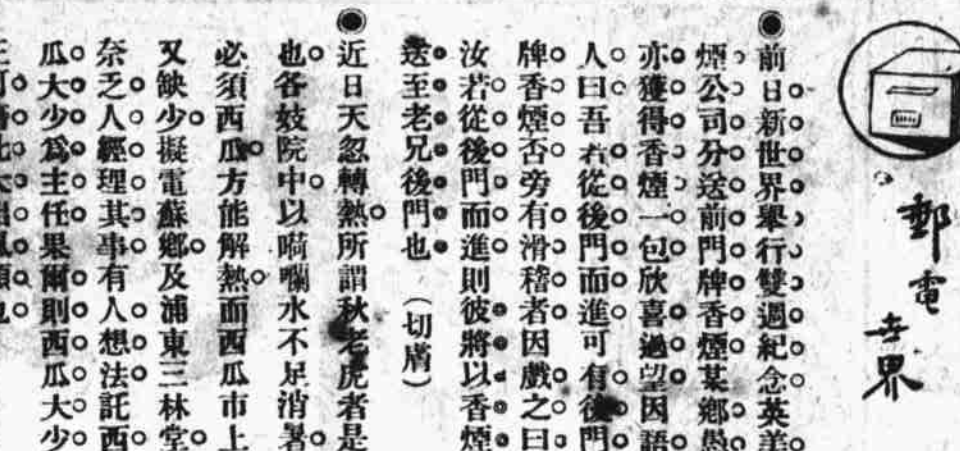 郵電世界
◉前日新世界舉行雙週紀念英美
煙公司分送前門牌香煙某鄉愚
亦獲得香煙一包欣喜過望因語
人曰吾若從後門而進可有後門
牌香煙否旁有滑稽者因戲之曰
汝若從後門而進則彼將以香煙
送至老兄後門也（切膚）
◉近日天忽轉熱所謂秋老虎者是
也各妓院中以嗬囒水不足消暑
必須西瓜方能解熱而西瓜市上
又缺少擬電蘇鄉及浦東三林堂
奈乏人經理其事有人想法託西
瓜大少爲主任果爾則西瓜大少